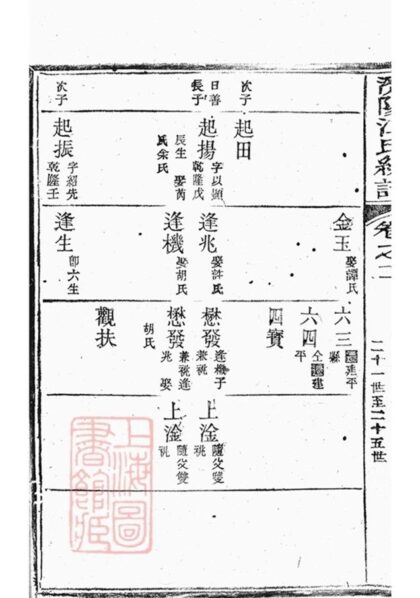 濟陽江氏統譜
卷之二
二十一世至二十五世
金玉 娶譚氏
六三 遷建平縣
六四 仝遷建平
四寶
次子
起田
曰善長子
起揚 字以顯 乾隆戊辰生 娶芮氏余氏
逢兆 娶許氏
懋發 逢機子兼祧
上淦 隨父雙祧
逢機 娶胡氏
懋發 兼祧逢兆 娶胡氏
上淦 隨父雙祧
觀扶
次子
起振 字紹先 乾隆壬
逢生 即六生
上海圖書館藏